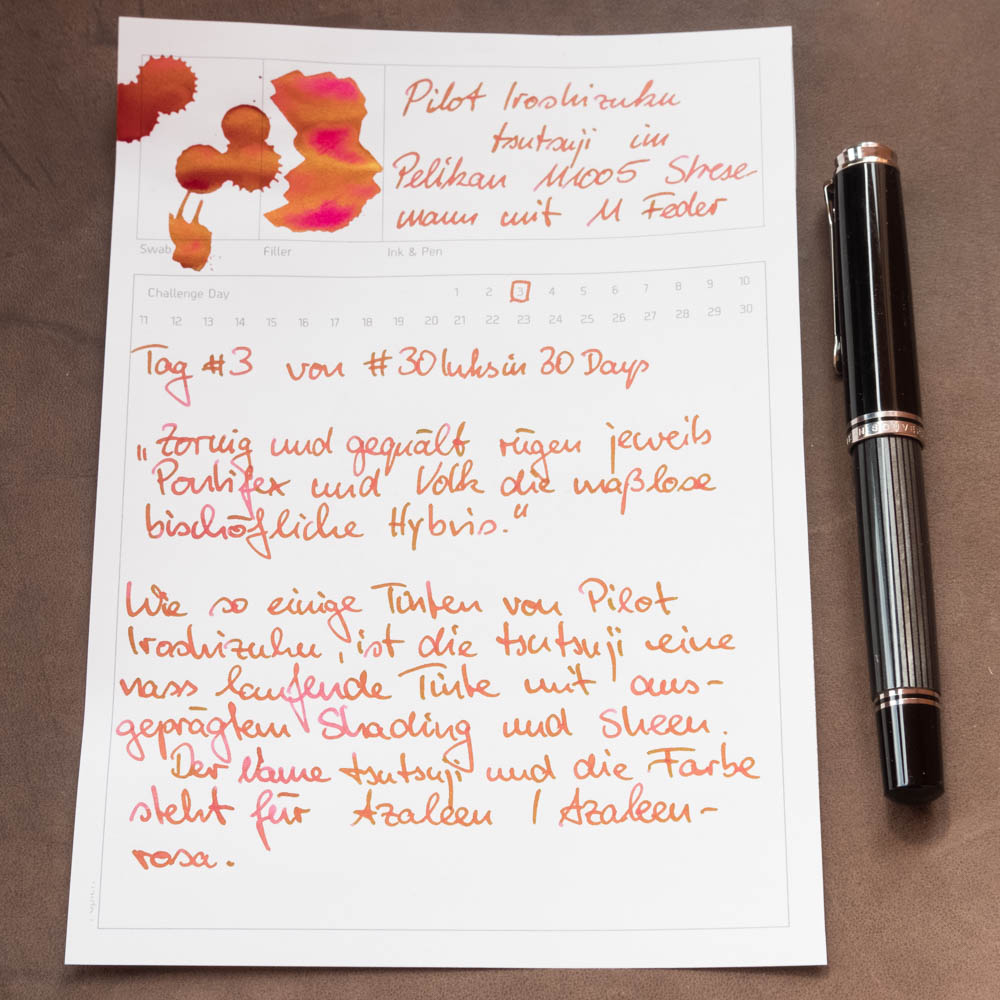 Pilot Iroshizuku
tsutsuji im
Pelikan M1005 Strese-
mann mit M Feder
Swab
Filler
Ink & Pen
Challenge Day
1 2 3 4 5 6 7 8 9 10
11 12 13 14 15 16 17 18 19 20 21 22 23 24 25 26 27 28 29 30
Tag #3 von #30Inksin30Days
„Zornig und gequält rügen jeweils
Pontifex und Volk die maßlose
bischöfliche Hybris.“
Wie so einige Tinten von Pilot
Iroshizuku, ist die tsutsuji eine
nass laufende Tinte mit aus-
geprägtem Shading und Sheen.
Der Name tsutsuji und die Farbe
steht für Azaleen / Azaleen-
rosa.